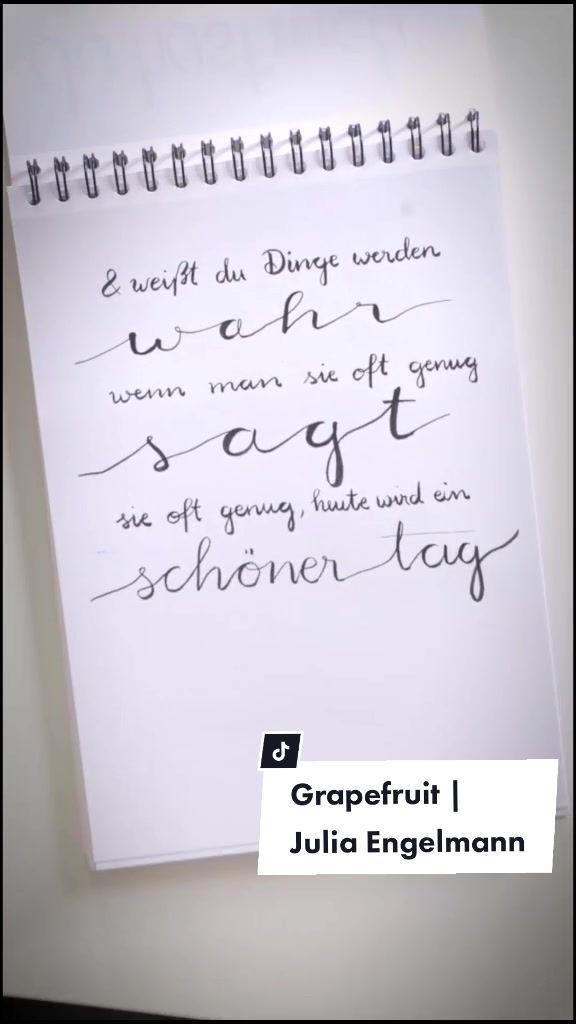 & weißt du Dinge werden
wahr
wenn man sie oft genug
sagt
sie oft genug, heute wird ein
schöner tag
Grapefruit |
Julia Engelmann